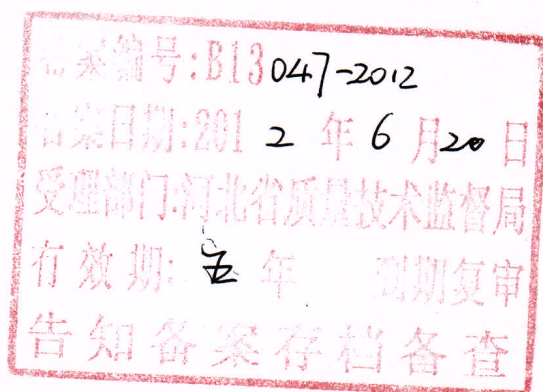 备案编号:B13047-2012
备案日期:2012年6月20日
受理部门:河北省质量技术监督局
有效期:五年 到期复审
告知备案存档备查